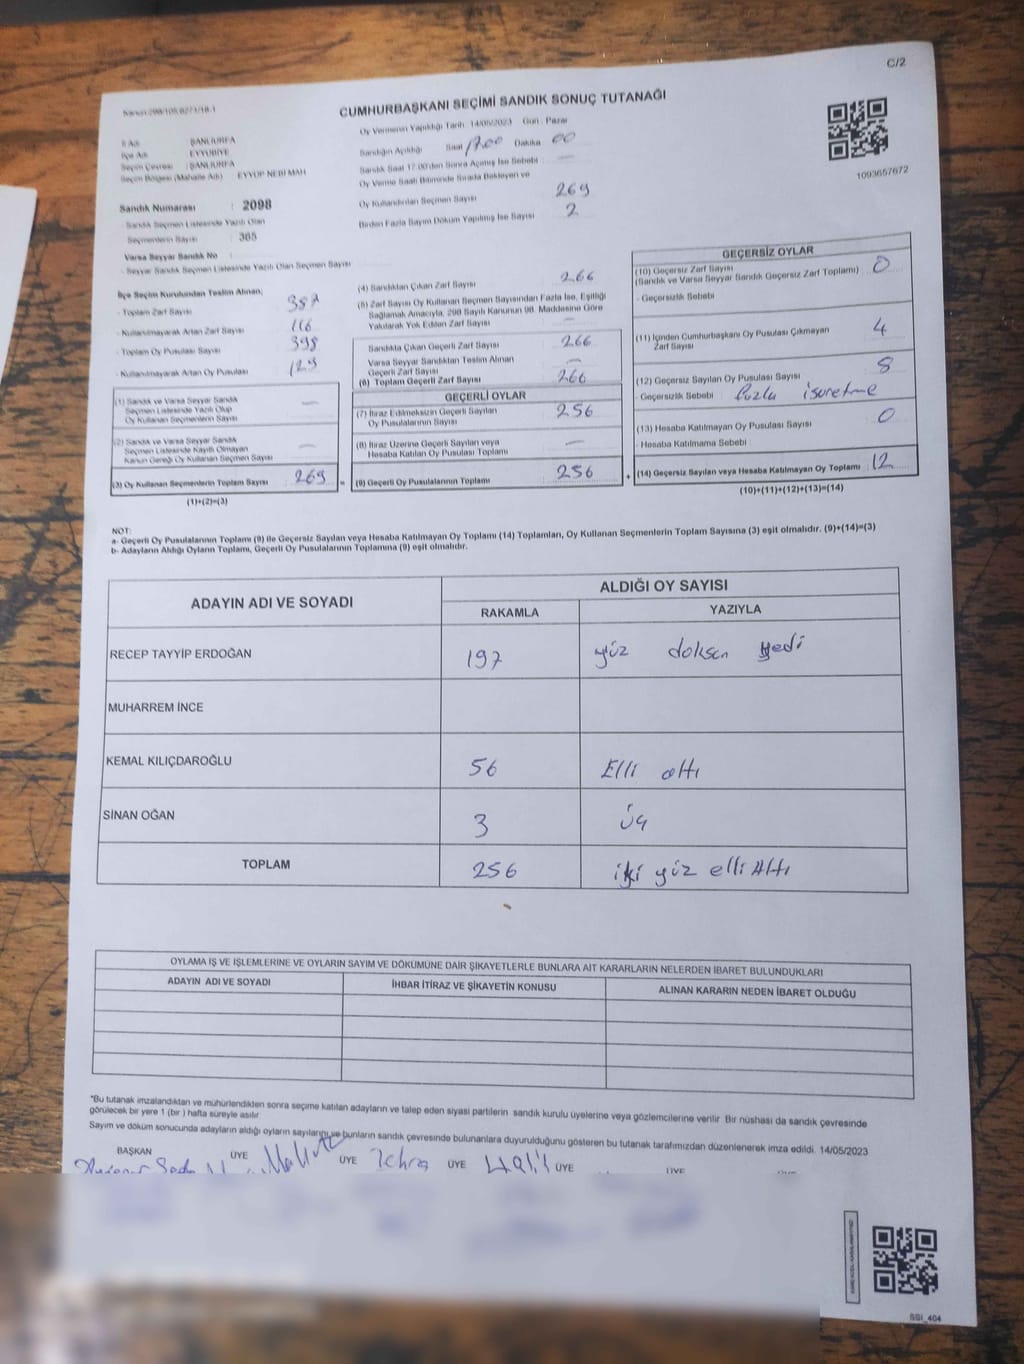 C/2
CUMHURBAŞKANI SEÇİMİ SANDIK SONUÇ TUTANAĞI
Oy Vermenin Yapıldığı Tarih 14/05/2023 Gün : Pazar
İl Adı : ŞANLIURFA
İlçe Adı : EYYÜBİYE
Seçim Çevresi : ŞANLIURFA
Seçim Bölgesi (Mahalle Adı) : EYYÜP NEBİ MAH
Sandık Numarası : 2098
Sandık Seçmen Listesinde Yazılı Olan
Seçmenlerin Sayısı : 365
Varsa Seyyar Sandık No :
- Seyyar Sandık Seçmen Listesinde Yazılı Olan Seçmen Sayısı :
Sandığın Açıldığı Saat 17:00 Dakika 00
Sandık Saat 17:00'den Sonra Açılmış İse Sebebi : —
Oy Verme Saati Bitiminde Sırada Bekleyen ve
Oy Kullandırılan Seçmen Sayısı 269
Birden Fazla Sayım Döküm Yapılmış İse Sayısı 2
1093657672
İlçe Seçim Kurulundan Teslim Alınan;
- Toplam Zarf Sayısı 387
- Kullanılmayarak Artan Zarf Sayısı 116
- Toplam Oy Pusulası Sayısı 398
- Kullanılmayarak Artan Oy Pusulası 129
(1) Sandık ve Varsa Seyyar Sandık
Seçmen Listesinde Yazılı Olup
Oy Kullanan Seçmenlerin Sayısı —
(2) Sandık ve Varsa Seyyar Sandık
Seçmen Listesinde Kayıtlı Olmayan
Kanun Gereği Oy Kullanan Seçmen Sayısı —
(3) Oy Kullanan Seçmenlerin Toplam Sayısı 269 =
(1)+(2)=(3)
(4) Sandıktan Çıkan Zarf Sayısı 266
(5) Zarf Sayısı Oy Kullanan Seçmen Sayısından Fazla İse, Eşitliği
Sağlamak Amacıyla, 298 Sayılı Kanunun 98. Maddesine Göre
Yakılarak Yok Edilen Zarf Sayısı —
Sandıkta Çıkan Geçerli Zarf Sayısı 266
Varsa Seyyar Sandıktan Teslim Alınan
Geçerli Zarf Sayısı —
(6) Toplam Geçerli Zarf Sayısı 266
GEÇERLİ OYLAR
(7) İtiraz Edilmeksizin Geçerli Sayılan
Oy Pusulalarının Sayısı 256
(8) İtiraz Üzerine Geçerli Sayılan veya
Hesaba Katılan Oy Pusulası Toplamı —
(9) Geçerli Oy Pusulalarının Toplamı 256 +
GEÇERSİZ OYLAR
(10) Geçersiz Zarf Sayısı
(Sandık ve Varsa Seyyar Sandık Geçersiz Zarf Toplamı) 0
- Geçersizlik Sebebi
(11) İçinden Cumhurbaşkanı Oy Pusulası Çıkmayan
Zarf Sayısı 4
(12) Geçersiz Sayılan Oy Pusulası Sayısı 8
- Geçersizlik Sebebi fazla işaretme
(13) Hesaba Katılmayan Oy Pusulası Sayısı 0
- Hesaba Katılmama Sebebi
(14) Geçersiz Sayılan veya Hesaba Katılmayan Oy Toplamı 12
(10)+(11)+(12)+(13)=(14)
NOT:
a- Geçerli Oy Pusulalarının Toplamı (9) ile Geçersiz Sayılan veya Hesaba Katılmayan Oy Toplamı (14) Toplamları, Oy Kullanan Seçmenlerin Toplam Sayısına (3) eşit olmalıdır. (9)+(14)=(3)
b- Adayların Aldığı Oyların Toplamı, Geçerli Oy Pusulalarının Toplamına (9) eşit olmalıdır.
ADAYIN ADI VE SOYADI
ALDIĞI OY SAYISI
RAKAMLA YAZIYLA
RECEP TAYYİP ERDOĞAN 197 yüz doksan yedi
MUHARREM İNCE
KEMAL KILIÇDAROĞLU 56 Elli altı
SİNAN OĞAN 3 üç
TOPLAM 256 iki yüz elli Altı
OYLAMA İŞ VE İŞLEMLERİNE VE OYLARIN SAYIM VE DÖKÜMÜNE DAİR ŞİKAYETLERLE BUNLARA AİT KARARLARIN NELERDEN İBARET BULUNDUKLARI
ADAYIN ADI VE SOYADI İHBAR İTİRAZ VE ŞİKAYETİN KONUSU ALINAN KARARIN NEDEN İBARET OLDUĞU
*Bu tutanak imzalandıktan ve mühürlendikten sonra seçime katılan adayların ve talep eden siyasi partilerin sandık kurulu üyelerine veya gözlemcilerine verilir. Bir nüshası da sandık çevresinde
görülecek bir yere 1 (bir ) hafta süreyle asılır.
Sayım ve döküm sonucunda adayların aldığı oyların sayılarını ve bunların sandık çevresinde bulunanlara duyurulduğunu gösteren bu tutanak tarafımızdan düzenlenerek imza edildi. 14/05/2023
BAŞKAN ÜYE ÜYE ÜYE ÜYE ÜYE
Halil
SSI_404